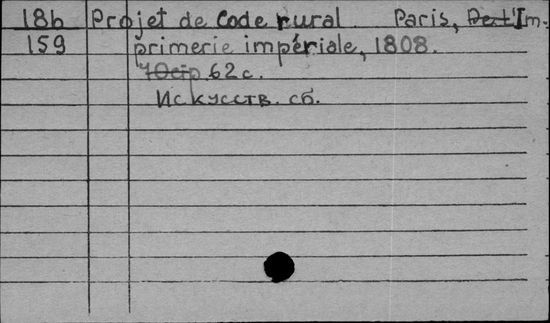 18b Projet de Code rural. Paris, l'Im-
159 primerie impériale, 1808.
62 с.
Искусств. сб.